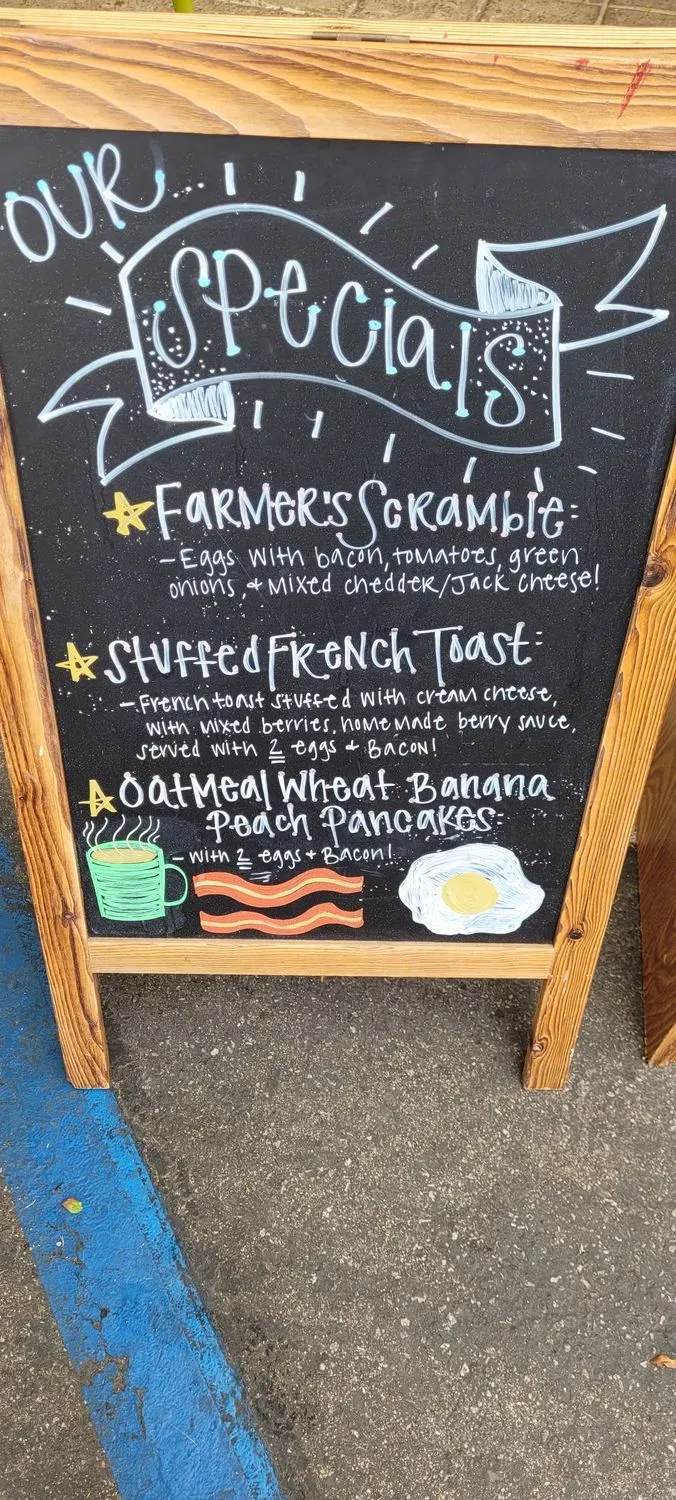 OUR...
Specials
Farmer's Scramble:
- Eggs with bacon, tomatoes, green
onions, + mixed chedder/Jack cheese!
Stuffed French Toast:
- French toast stuffed with cream cheese,
with mixed berries, homemade berry sauce,
served with 2 eggs + Bacon!
Oatmeal Wheat Banana
Peach Pancakes:
- with 2 eggs + Bacon!